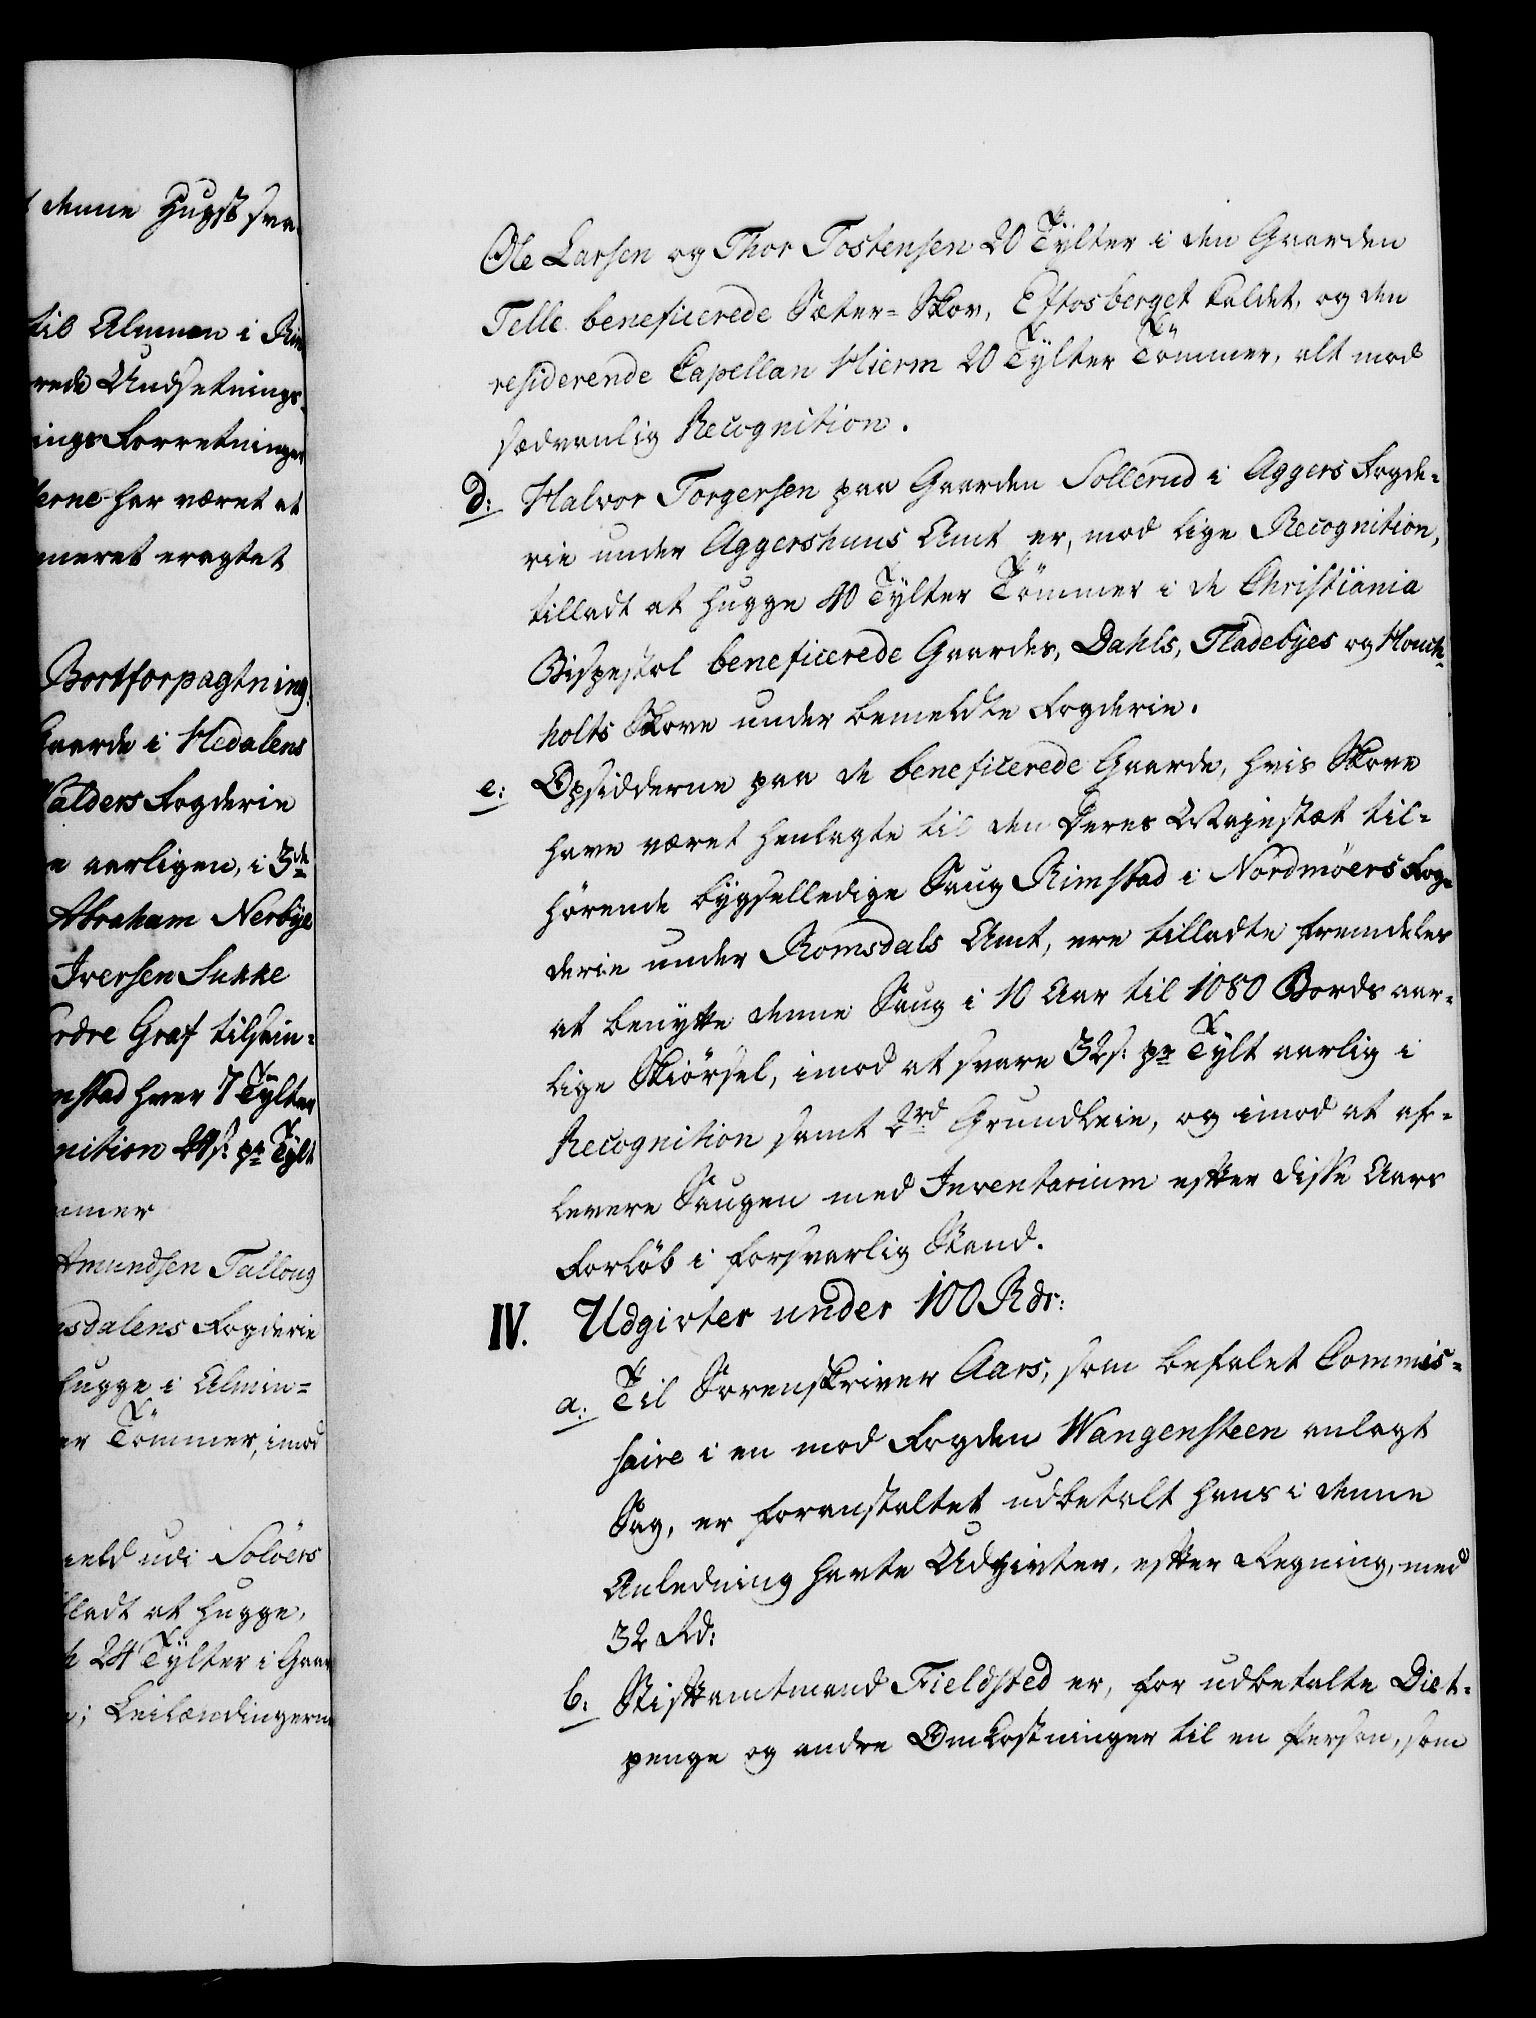 denne Hugst sva-
til Almuen i Rin
rede Udsetnings-
ings Forretninger
erne har været at
meret eragtet
Bortforpagtning
Gaarde i Hedalens
Valders Fogderie
e aarligen, i 3de
Abraham Nerbÿe
Iversen Sukke
ordre Graf tilsvin-
nstad hver 7 Tÿlter
nition 24 s: pr Tÿlt
mmer
Amundsen Talloug
sdalens Fogderie
hugge i Almin-
er Tömmer, imod
ield udi Solöers
lladt at hugge,
24 Tÿlter i Gaar
; Leilændingerne
Ole Larsen og Thor Tostensen 20 Tÿlter i den Gaarden
Telle beneficerede Sæter-Skov, Eftosberget kaldet, og den
residerende Capellan Hierm 20 Tÿlter Tömmer, alt mod
sædvanlig Recognition.
d: Halvor Torgersen paa Gaarden Sollerud i Aggers Fogde-
rie under Aggershuus Amt er, mod lige Recognition,
tilladt at hugge 40 Tÿlter Tömmer i de Christiania
Bispestol beneficerede Gaardes, Dahls, Fladebÿes og Houk-
holts Skove under bemeldte Fogderie.
e: Opsidderne paa de beneficerede Gaarde, hvis Skove
have været henlagte til den Deres Majestæt til-
hørende bÿgselledige Saug Rimstad i Nordmöers Fog-
derie under Romsdals Amt, ere tilladte fremdeles
at benytte denne Saug i 10 Aar til 1080 Bords aar-
lige Skiörsel, imod at svare 32 s: pr Tÿlt aarlig i
Recognition samt 2rd Grundleie, og imod at af-
levere Saugen med Inventarium efter disse Aars
Forlöb i forsvarlig Stand.
IV. Udgivter under 100 Rdr:
a: Til Sorenskriver Aars, som befalet Commis-
saire i en mod Fogden Wangensteen anlagt
Sag, er foranstaltet udbetalt hans i denne
Anledning havte Udgivter, efter Regning, med
32 Rd:
b: Stiftamtmand Fieldsted er, for udbetalte Diet-
penge og andre Omkostninger til en Person, som